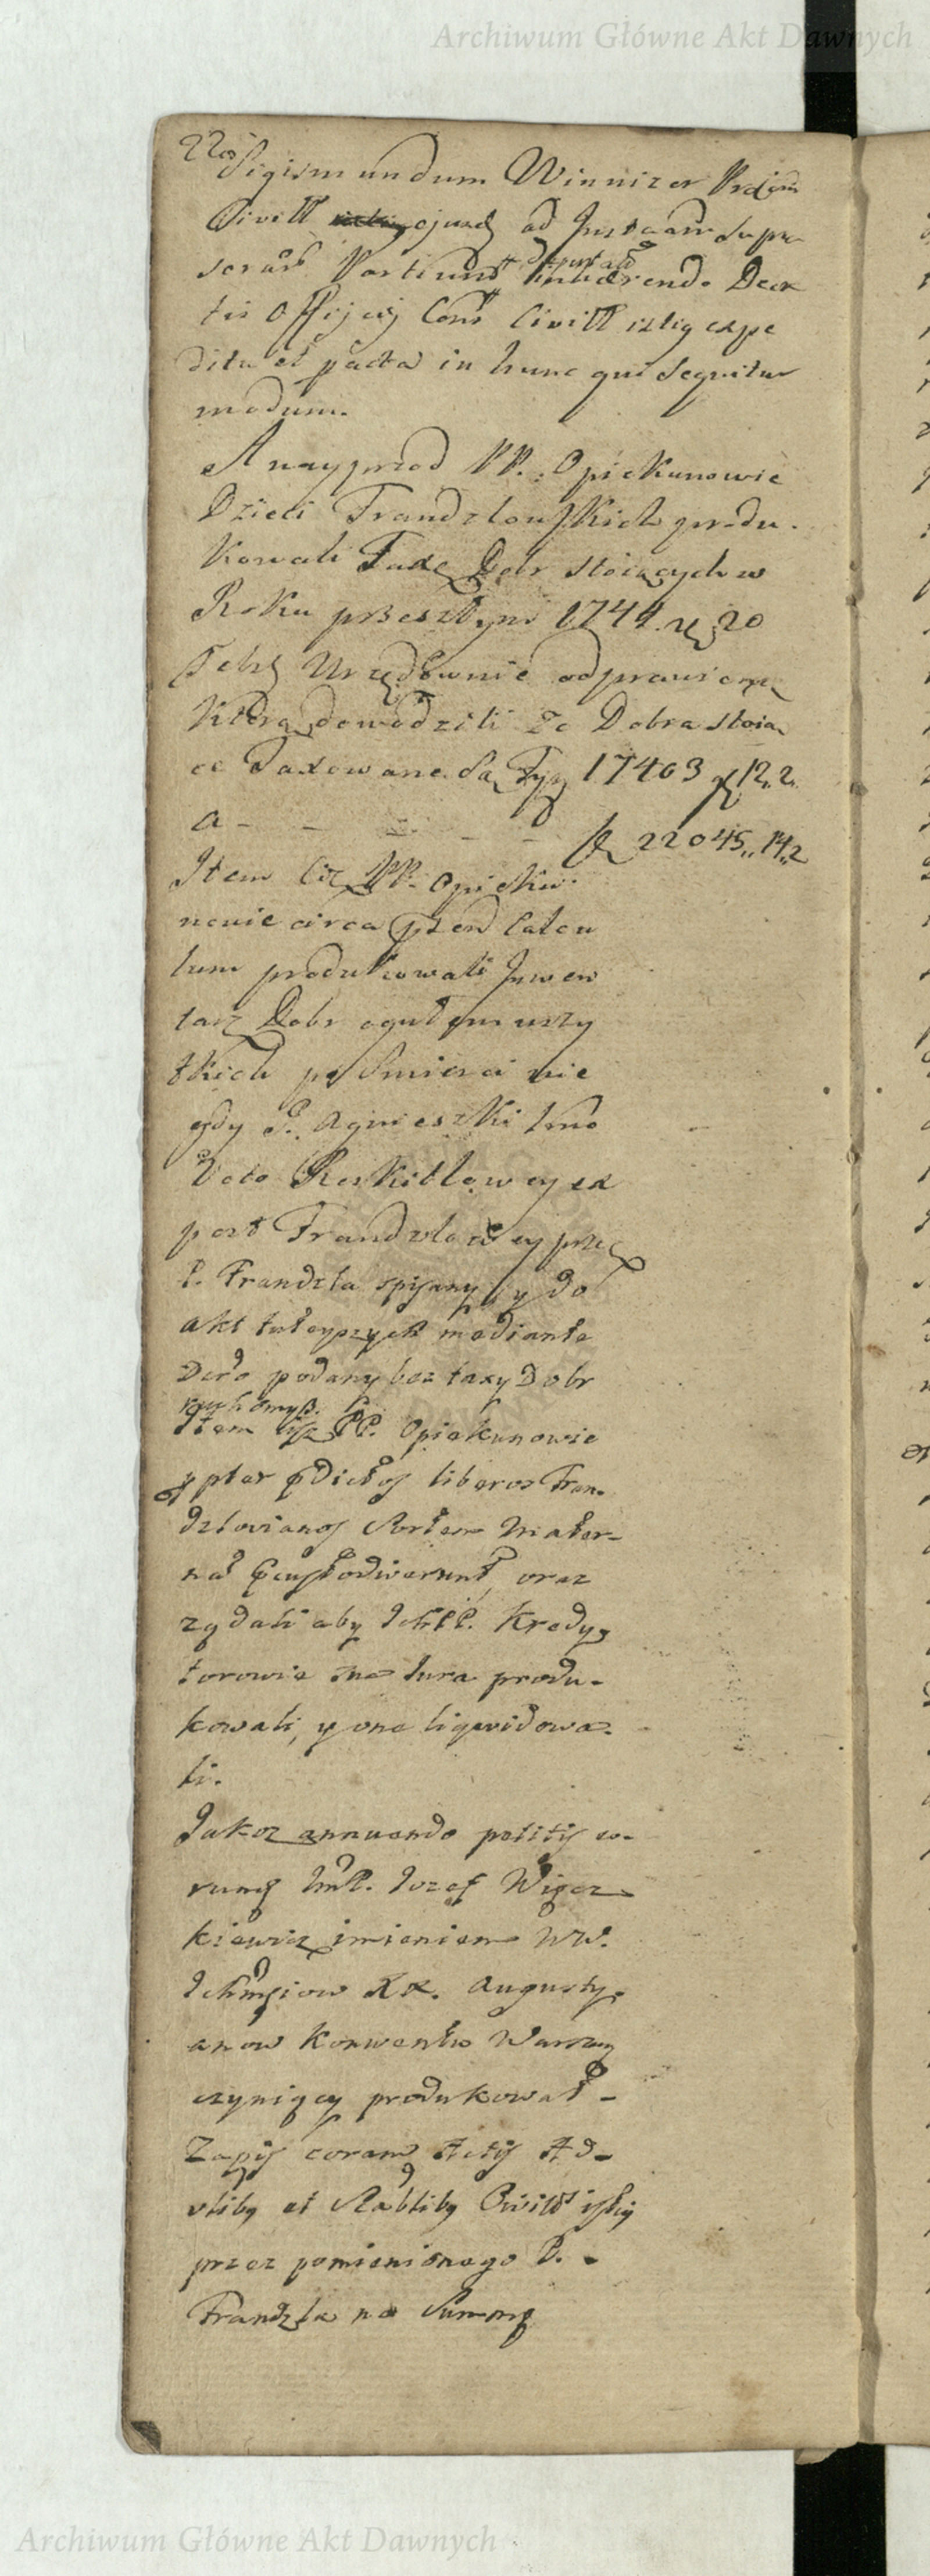 Archiwum Główne Akt Dawnych
220
Sigismundum Winnizer
Civill ejusd ad Instaam supra
script Partium inhaerendo Decre
tis Offij Cons Civill istig expe
dita et pacta in hunc qui sequitur
modum.
A nayprzod PP. Opiekunowie
Dzieci Frandzlowskich produ.
kowali Taxę Dobr stoiących w
Roku przeszłym 1744. 20
Febr Urzędownie odprawioną
Ktorą dowodzili Ze Dobra stoia
ce Taxowane Są Tyn 17403 12. 2.
a - - - - - 22045,, 14,, 2
Item Ciż PP. Opieku
nowie circa Calcu
lum produkowali Inwen
tarz Dobr ogułem wszy
tkich po Smierci nie
gdy P. Agnieszki 1mo
Voto Roskitlowey ex
post Frandzlowey przez
P. Frandzla spisany, y do
Akt tuteyszych mediante
podany bez taxy Dobr
ruchomyh.
Item ciż PP. Opiekunowie
liberos Fran-
dzlovianos Sortem Mater-
nã oraz
ządali aby IchmPP. Kredy,
torowie Jura produ-
kowali, y one liqvidowa-
li.
Jakoz annuendo petitis eo-
rumq ImP. Jozef Więcz
kiewicz imieniem WW.
Ichmciow XX. Augusty,
anow Konwentu Warszaw
czyniący produkował -
Zapis coram Actis Ad-
vtibq et Scabtibq Civill istiq
przez pomienionego P. -
Frandzla na Summę
Archiwum Główne Akt Dawnych